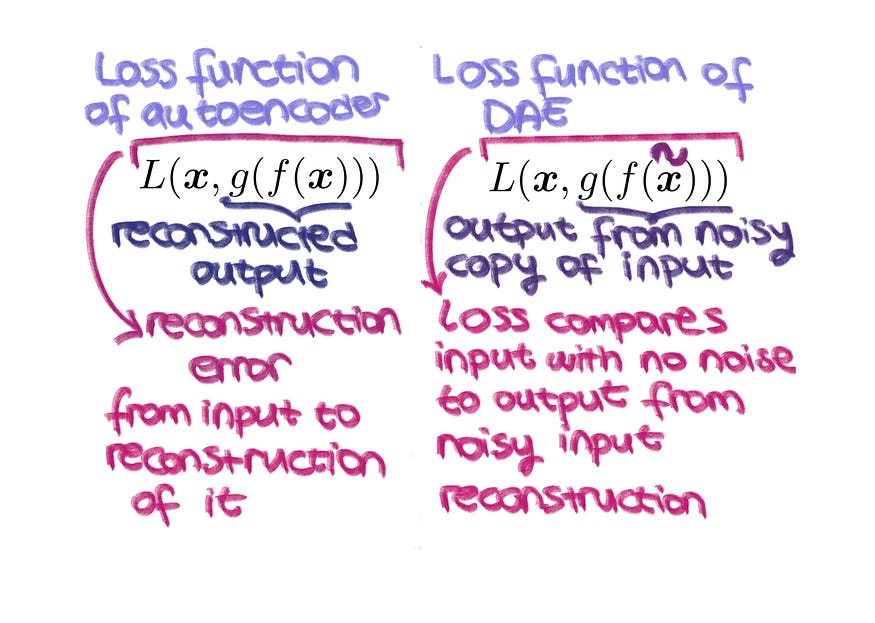 Loss function
of autoencoder
L(x, g(f(x)))
reconstructed
output
reconstruction
error
from input to
reconstruction
of it
Loss function of
DAE
L(x, g(f(x̃)))
output from noisy
copy of input
Loss compares
input with no noise
to output from
noisy input
reconstruction